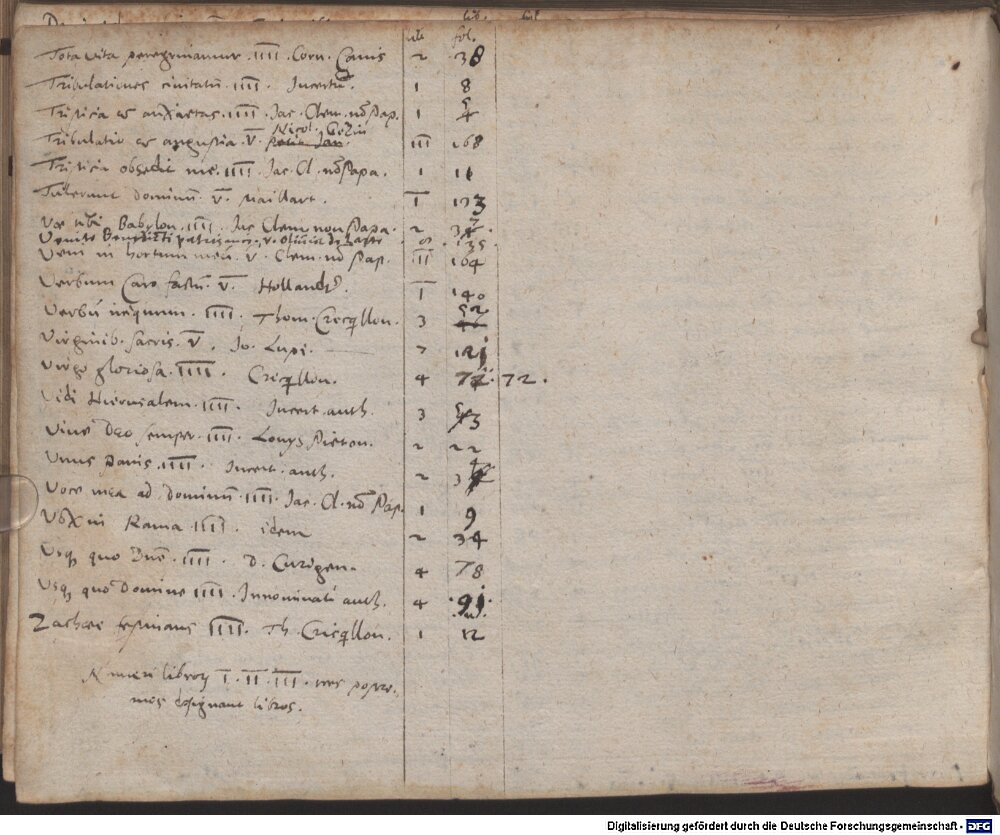 lib. fol.
Tota vita peregrinamur IIII. Corn. Canis 2 38
Tribulationes civitatū. IIII. Incertū. 1 8
Tristitia et anxietas. IIII. Jac. Clem. nō Pap. 1 5 4
Nicol. Gōziū
Tribulatio et angustia. V̄. III 168
Tristitia obsedit me. IIII. Jac. Cl. nō Papa. 1 11
Tulerunt dominū. V̄. Maillart. I 123
Vae tibi Babylon. IIII. Jac Clem non Papa. 2
Venite Benedicti patris mei. V. 135
Veni in hortum meū. V̄. Clem. nō Pap. II 164
Verbum Caro factū. V̄. Hollander. I 140
Verbū iniquum. IIII. Thom. Crecqllon. 3 52
Virginib. sacris. V̄. Jo. Lupi. 121
Virgo gloriosa. IIII. Cricqllon. 4 72. 72.
Vidi Hierusalem. IIII. Incert. auth. 3 43
Vivo Deo semper. IIII. Louys Pieton. 2 22
Unus Panis. IIII. Incert. auth. 2
Voce mea ad Dominū. IIII. Jac. Cl. nō Pap. 1 9
Vox in Rama. IIII. idem 2 34
Usq quo Dnē. IIII. D. Curigen. 4 78
Usq quo Domine IIII. Innominati auth. 4 91
Zachee festinans IIII. Th. Cricqllon. 1 12
Numeri libroꝝ I. II. III.
designant libros.
Digitalisierung gefördert durch die Deutsche Forschungsgemeinschaft - DFG